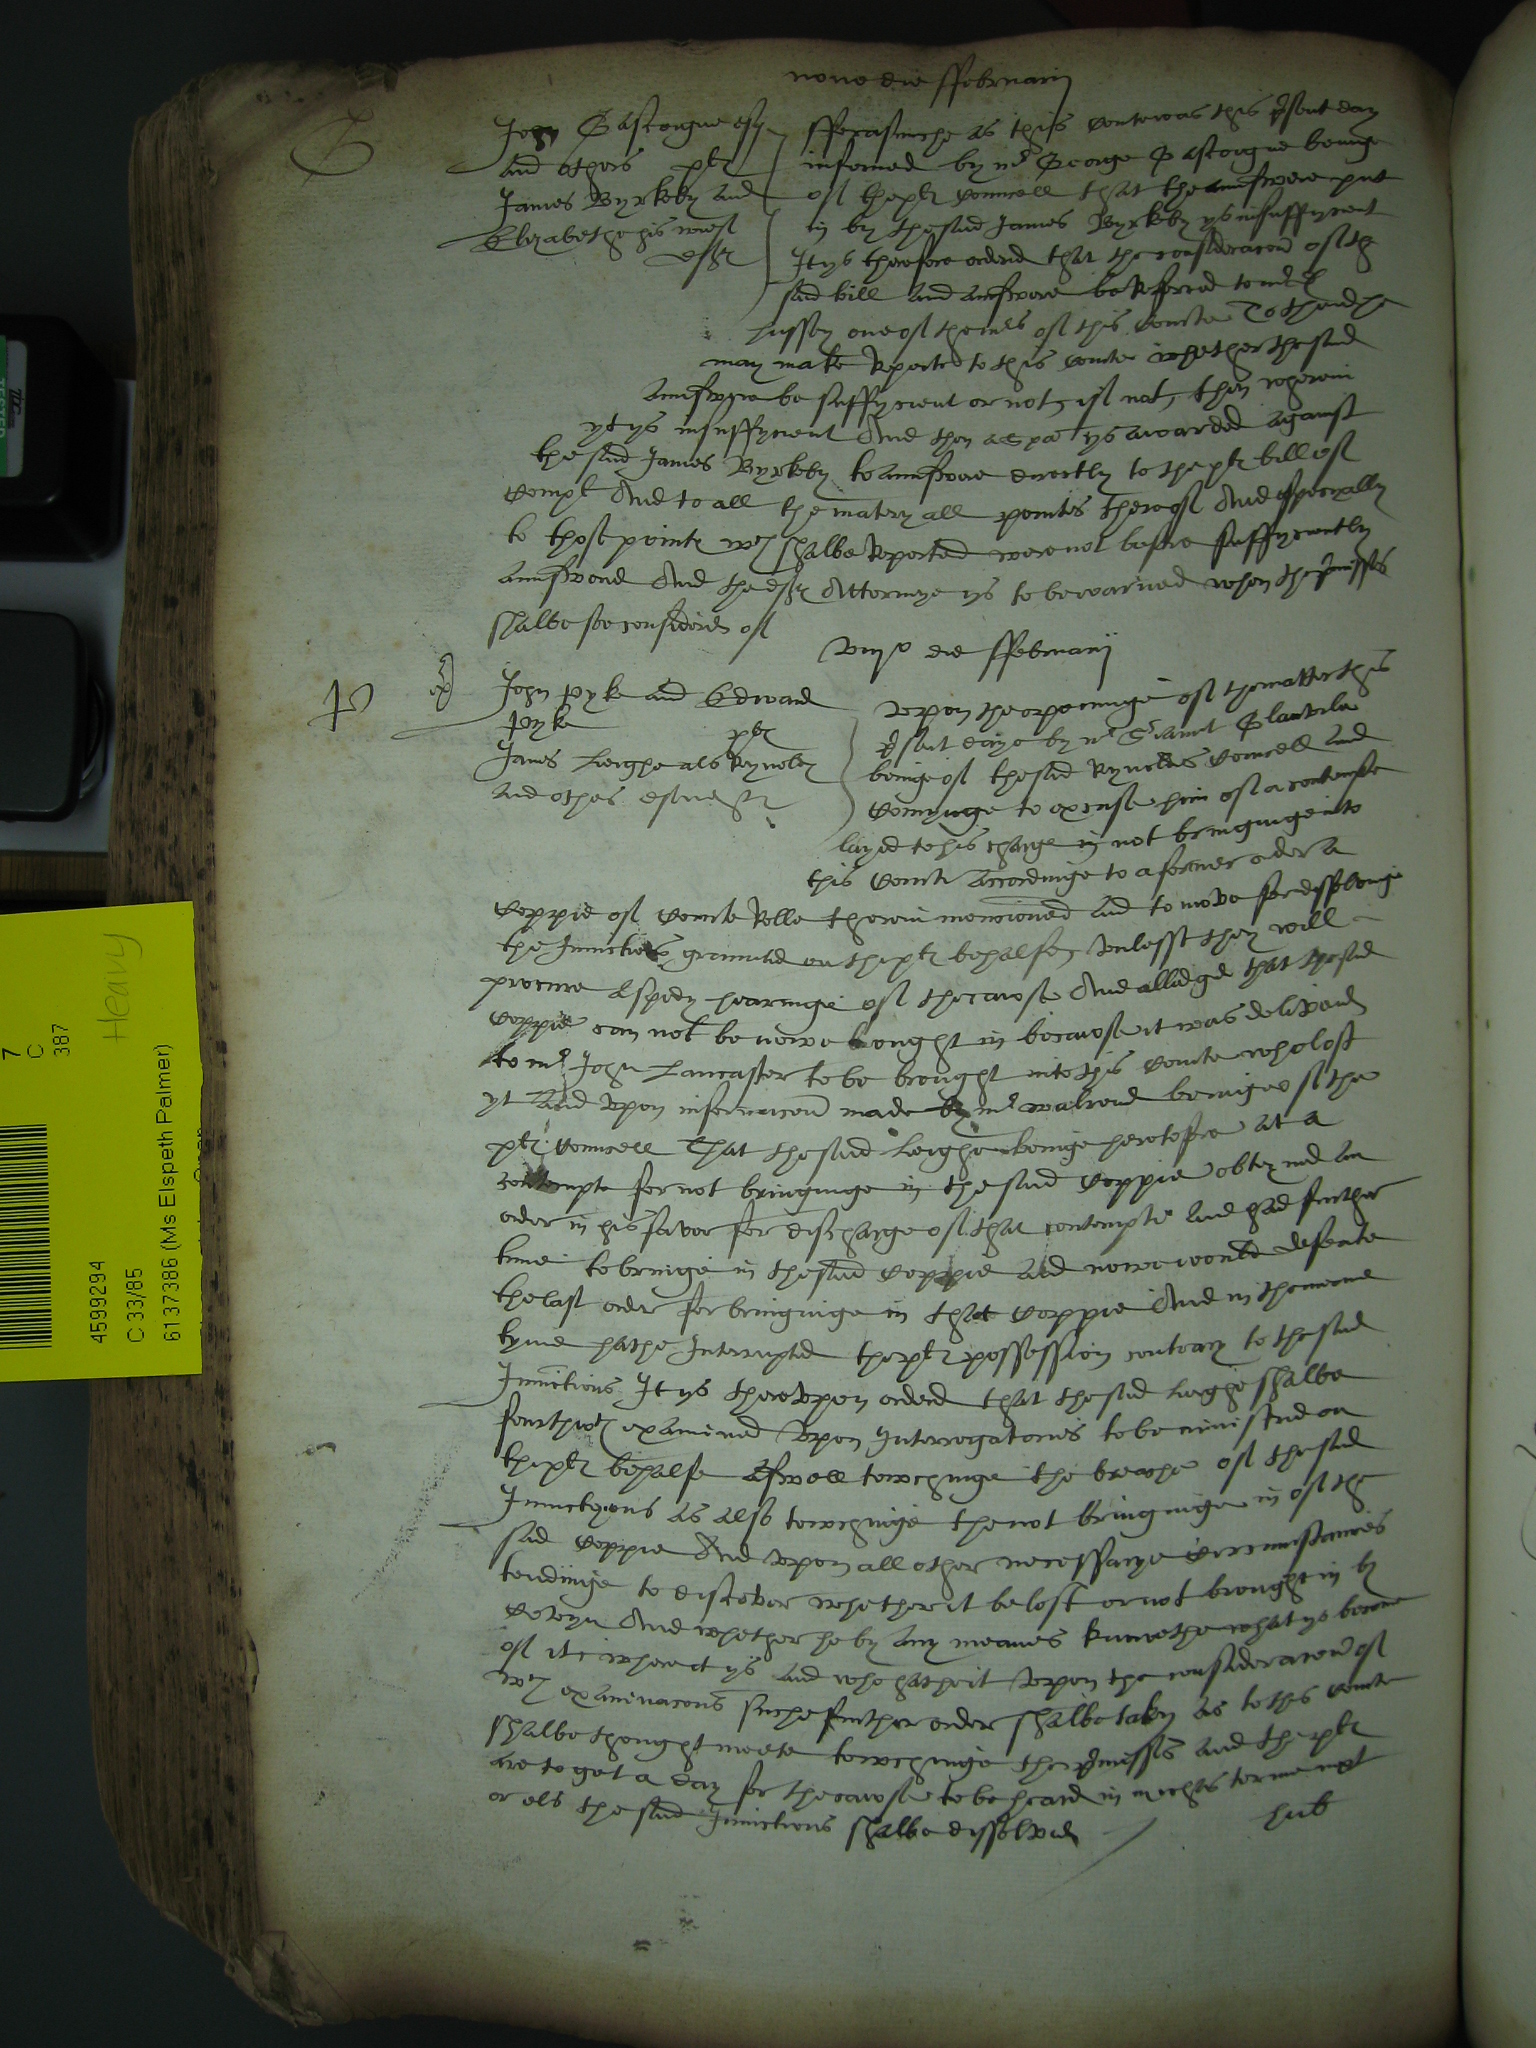 nono die ffebruarij
G
John Gascoigne esq
and others plts
James Byrkeby and
Elizabethe his wief
deftes
fforasmuche as this Courte was this psent day
informed by mr George Gascoigne beinge
of the plts Councell that the aunswere put
in by the said James Byrkeby ys insuffycient
It ys therefore ordered that the consideracon of the
said bill and aunswere be Referred to mr D
Hussey one of the mrs of this Courte To thend he
may make Reporte to this Courte whether the said
aunswere be suffycient or not, if not, then wherein
yt ys insuffycient And then a ys awarded against
the said James Byrkeby to aunswere directly to the plts bill of
Complt And to all the materyall pointes thereof And especyally
to those points wch shalbe Reported were not before suffycyently
aunswered And the defts Attorneye ys to be warned when the pmisses
shalbe soe considered of
viijo die ffebruarij
P
John Pyke and Edward
Pyke plts
James Leighe als Reynolds
and others deftes
Vpon the openinge of the matter this
psent daye by mr Siaunt Glanvile
beinge of the said Reynoldes Councell and
Comynge to excuse him of a contempte
layed to his charge in not bringinge into
this Courte accordinge to a former order a
Coppie of Courte Rolle therein mencioned and to move for dissolvinge
the Iniunctions graunted on the plts behalfe, vnlesse they will
procure a spedy hearinge of the cawse And alledged that the said
Coppie can not be nowe brought in because it was delivered
to mr John Lancaster to be brought into this Courte who lost
yt And vpon informacon made by mr walrond beinge of the
plts Councell That the said Leighe beinge heretofore at a
contempte for not bringinge in the said Coppie obteyned an
order in his favor for discharge of that contempte and had further
time to bringe in the said Coppie and nowe would defeate
the last order for bringinge in that Coppie And in the meane
tyme hathe Interrupted the plts possession contrary to the said
Iniunctions It ys therevpon ordered that the said Leighe shalbe
fourthwth examined vpon Interrogatories to be ministred on
the plts behalfe Aswell towchinge the breache of the said
Iniunctyons as also towchinge the not bringinge in of the
said Coppie And vpon all other necessarye Circumstances
tendinge to discover whether it be lost or not brought in by
Covyn And whether he by any meanes knowethe what ys become
of it: where it ys and who hathe it vpon the consideracon of
wch examinacons suche further order shalbe taken as to this Courte
shalbe thought meete towchinge the pmisses and the plts
are to get a day for the cawse to be heard in michis terme next
or els the said Iniunctions shalbe dissolved
Heavy
7
C
387
4599294
C 33/85
6137386 (Ms Elspeth Palmer)